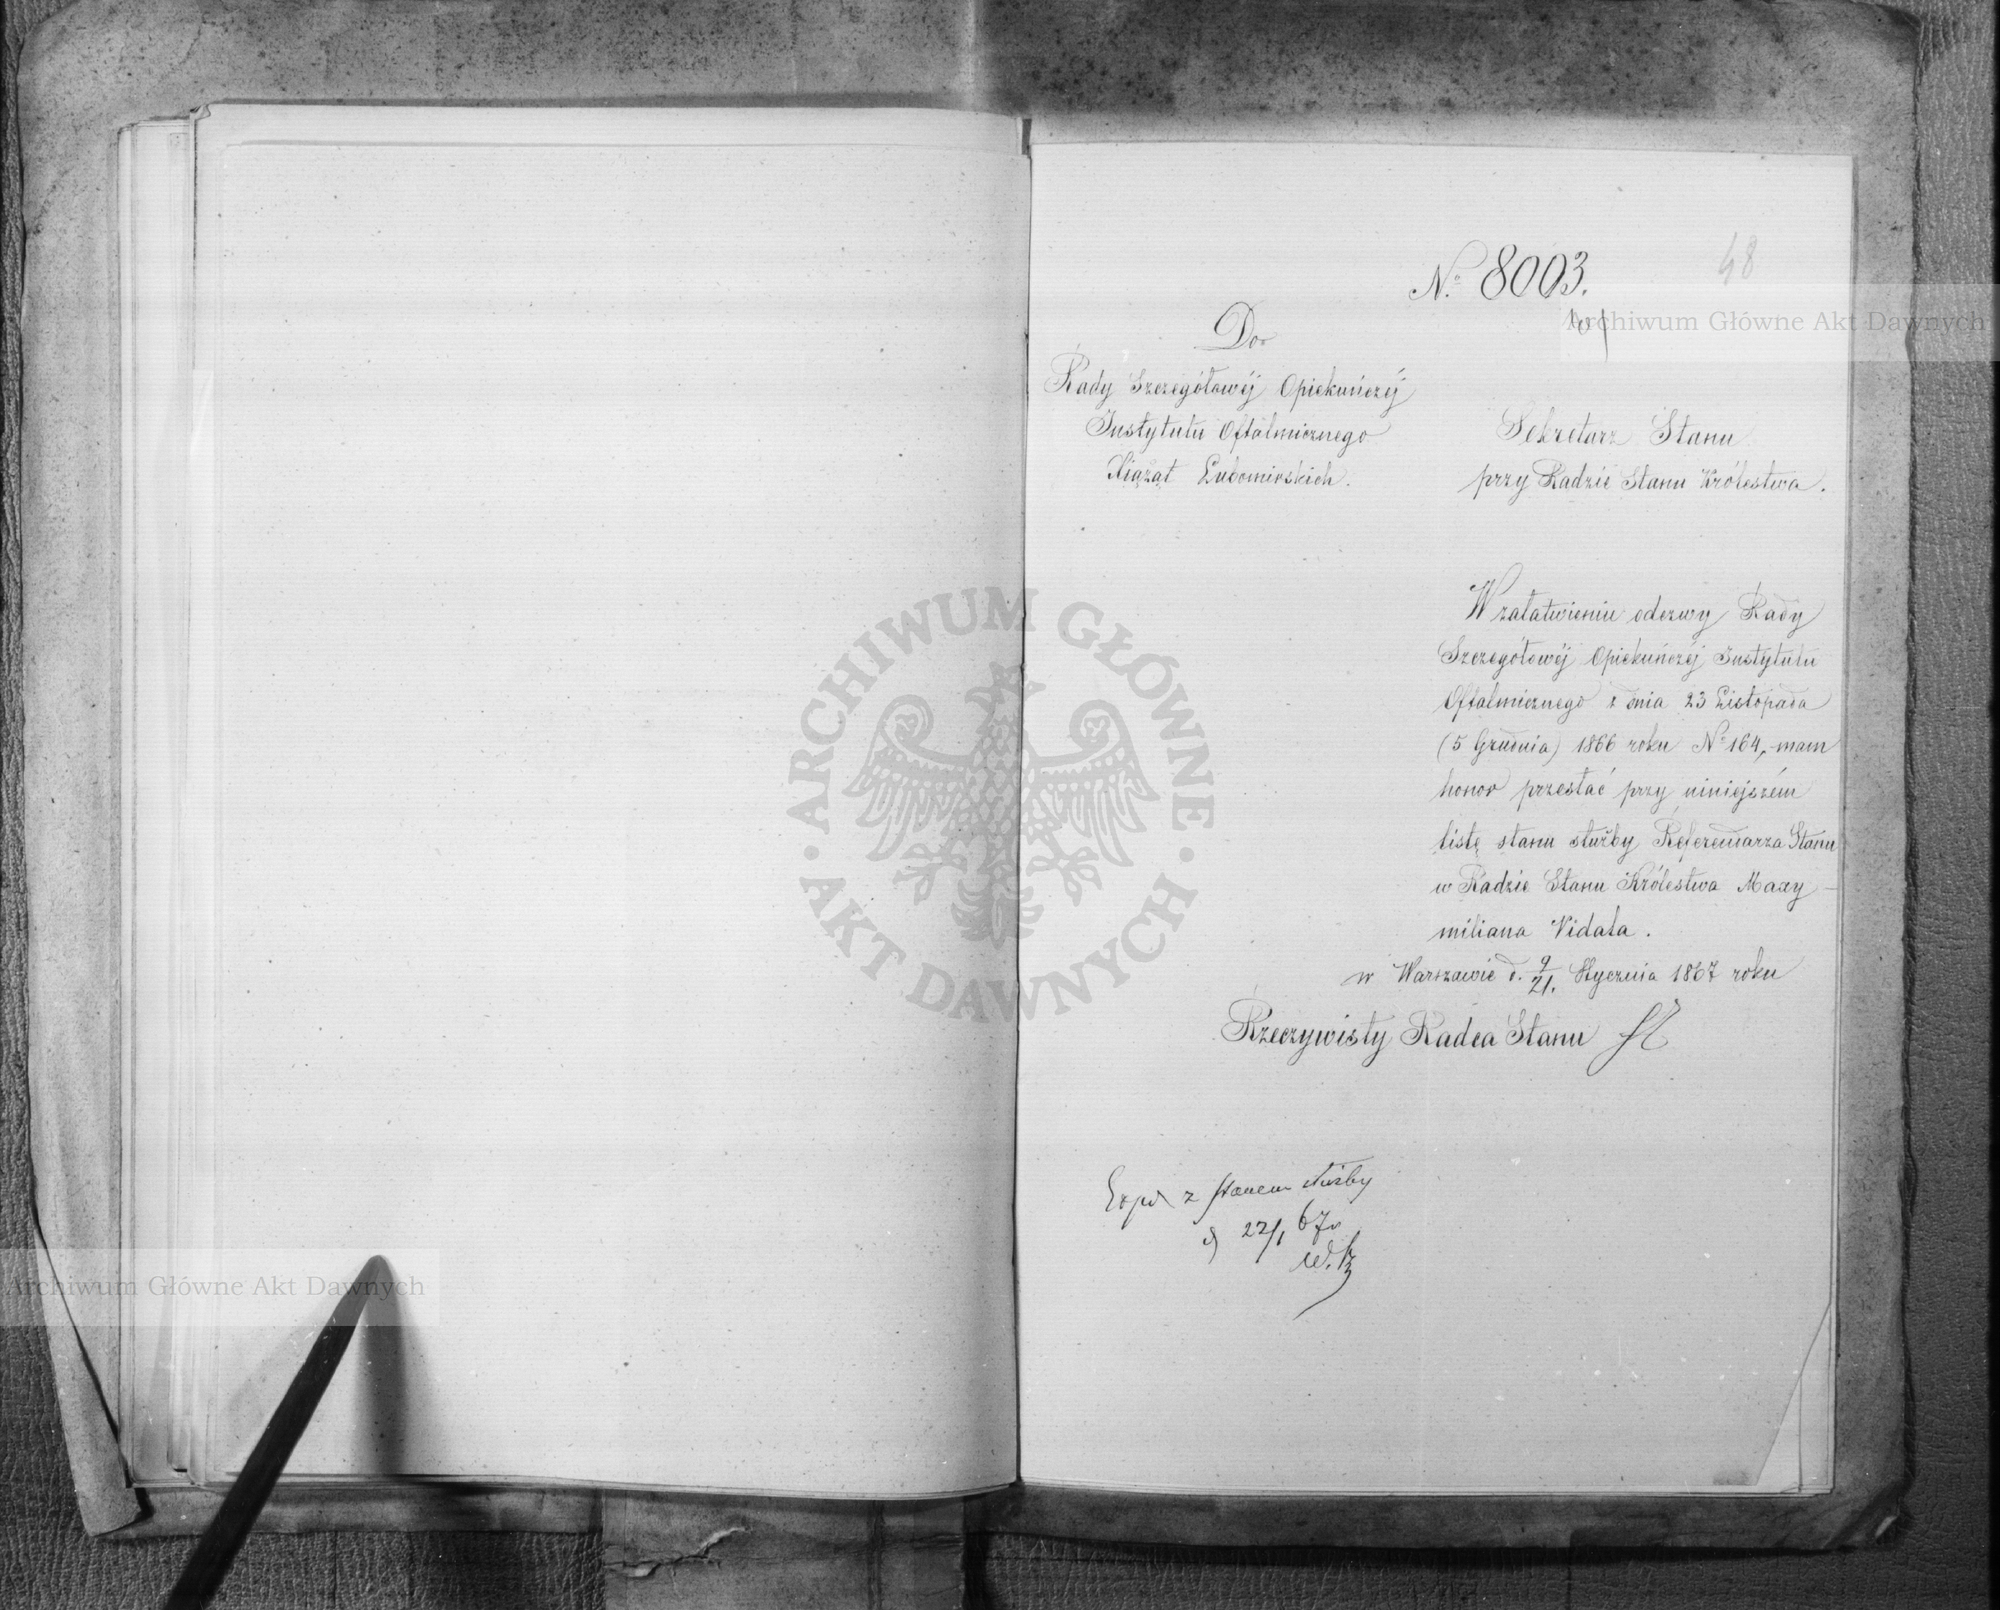 48
№ 8003.
Do
Rady Szczegółowéj Opiekuńczéj
Instytutu Oftalmicznego
Xiążąt Lubomirskich.
Sekretarz Stanu
przy Radzie Stanu Królestwa.
W załatwieniu odezwy Rady
Szczegółowéj Opiekuńczéj Instytutu
Oftalmicznego z dnia 23 Listopada
(5 Grudnia) 1866 roku № 164, mam
honor przesłać przy niniejszém
listę stanu służby Referendarza Stanu
w Radzie Stanu Królestwa Maxy-
miliana Vidala.
w Warszawie d. 9/21. Stycznia 1867 roku
Rzeczywisty Radca Stanu
z stanem służby
d 22/1 67
Archiwum Główne Akt Dawnych
Archiwum Główne Akt Dawnych
ARCHIWUM GŁÓWNE
· AKT DAWNYCH ·